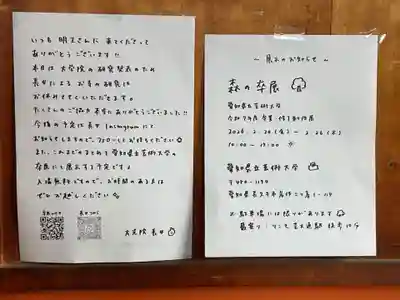 いつも 明文さんに 来てくださって
ありがとうございます!!
本日は 大学院の 研究発表のため
長田による お寺の 研究は
お休みさせていただきます。
たくさんのご協力 本当にありがとうございました!!
今後の予定は 長田 Instagramにて
お知らせしますので、フォローしてお待ちください
また、これまでのまとめを 愛知県立芸術大学の
卒展にて展示する予定です♪
入場無料ですので、お時間のある方は
ぜひ お越しください
大学院 長田
〜 展示のお知らせ 〜
森の卒展
愛知県立芸術大学
令和7年度 卒業・修了制作展
2026. 2. 20 (金) 〜 2. 26 (木)
10:00 〜 17:00
愛知県立芸術大学
〒480-1194
愛知県長久手市岩作三ケ峯1-114
※駐車場には限りがあります
最寄り:リニモ 芸大通駅 徒歩10分